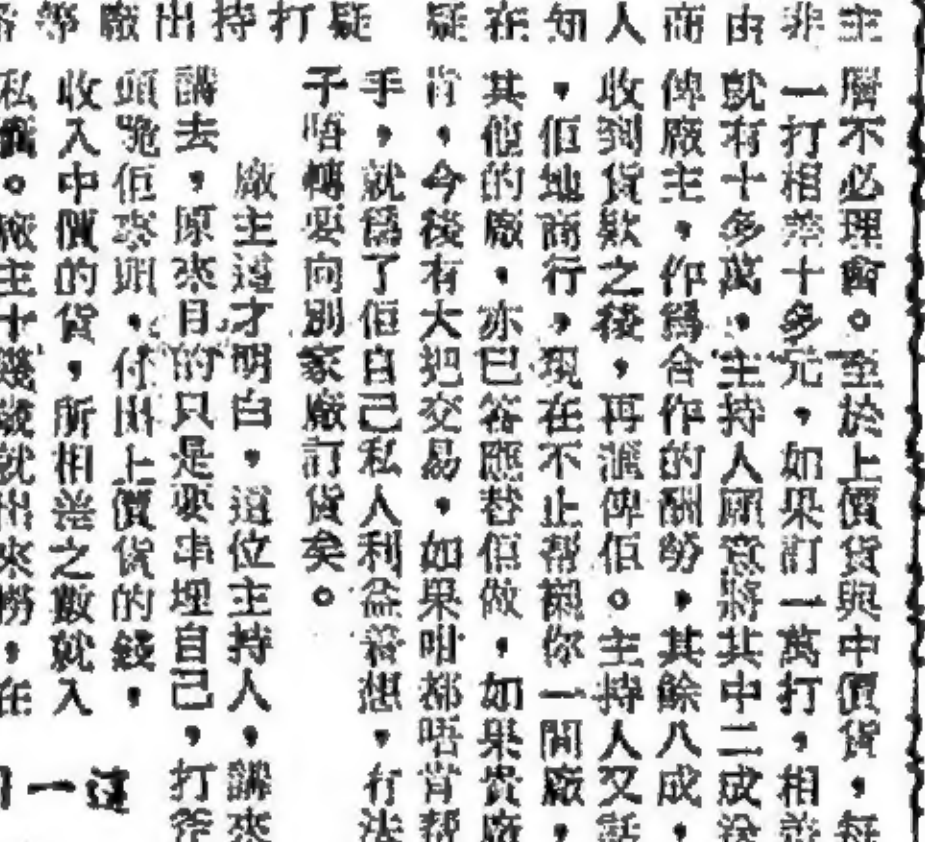 主
非
由
商
人
知
在
疑
疑
打
持
出
廠
等
層不必理會。至於上價貨與中價貨，每
一打相差十多元，如果訂一萬打，相差
就有十多萬，主持人願意將其中二成送
俾廠主，作爲合作的酬勞，其餘八成，
收到貨欵之後，再滙俾佢。主持人又話
，佢哋商行，現在不止帮襯你一間廠，
其他的廠，亦已答應替佢做，如果貴廠
肯，今後有大把交易，如果咁都唔肯幫
手，就爲了佢自己私人利益着想，冇法
子唔轉要向別家廠訂貨矣。
廠主這才明白，這位主持人，講來
講去，原來目的只是要串埋自己，打斧
頭 佢 頭，付出上價貨的錢，
收入中價的貨，所相差之數就入
私 。廠主十幾歲就出來撈，在
這一